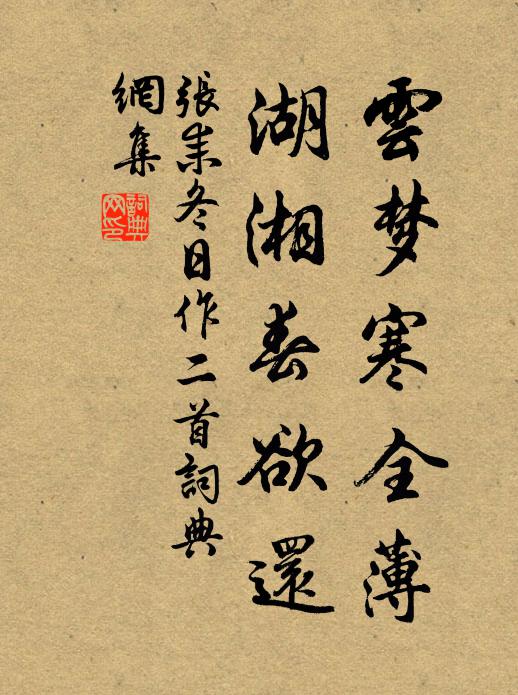 雲梦寒全薄
湖湘春欲還
張耒冬日作二首詞典
網集
詞典
网印